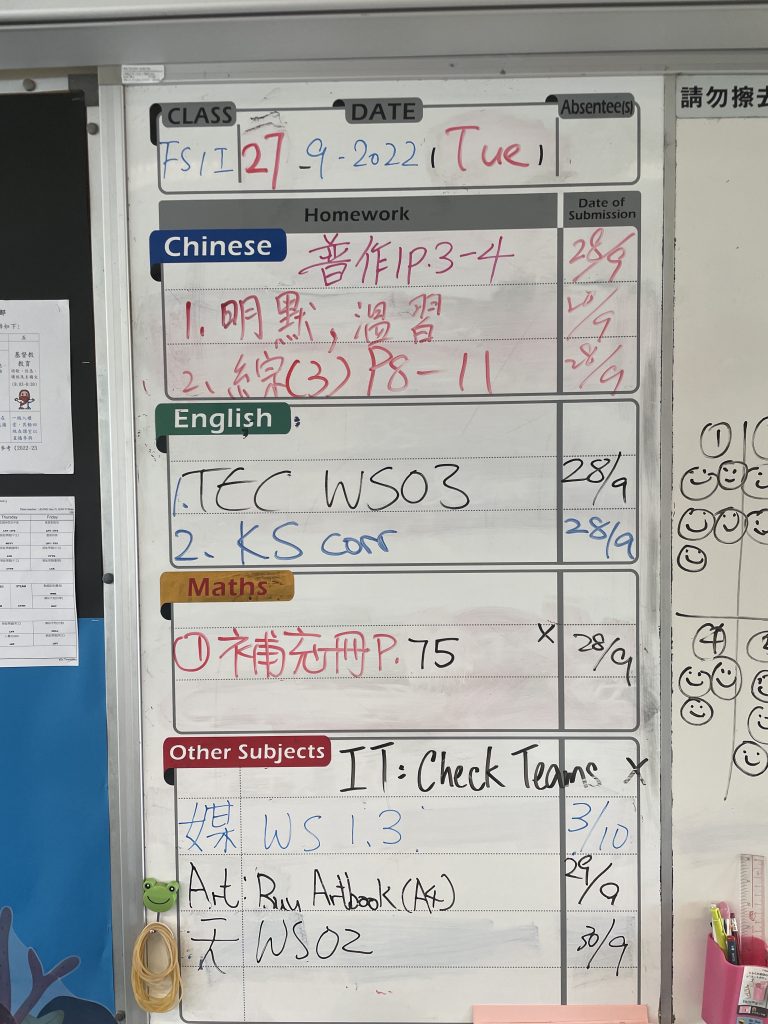 CLASS DATE Absentee(s)
FS1I 27-9-2022 (Tue)
Homework Date of Submission
Chinese 普作1P.3-4 28/9
1. 明默, 溫習
2. 綜(3) P8-11 28/9
English
1. TEC WS03 28/9
2. KS corr 28/9
Maths
① 補充冊P. 75 x 28/9
Other Subjects IT: Check Teams x
媒 WS 1.3. 3/10
Art: Buy Artbook (A4) 29/9
天 WS02 30/9
請勿擦去
①
④
基督教
教育
Thursday Friday